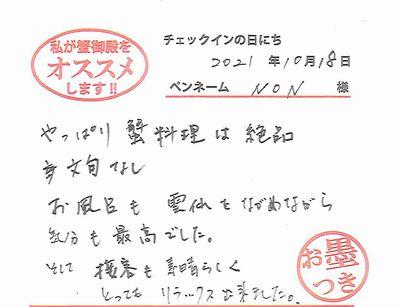 私が蟹御殿を
オススメ
します!!
チェックインの日にち
2021 年 10月 18日
ペンネーム NON 様
やっぱり 蟹料理は 絶品
文句なし
お風呂も 雲仙をながめながら
気分も最高でした。
そして 接客も 素晴らしく
とっても リラックス出来ました。
お墨つき